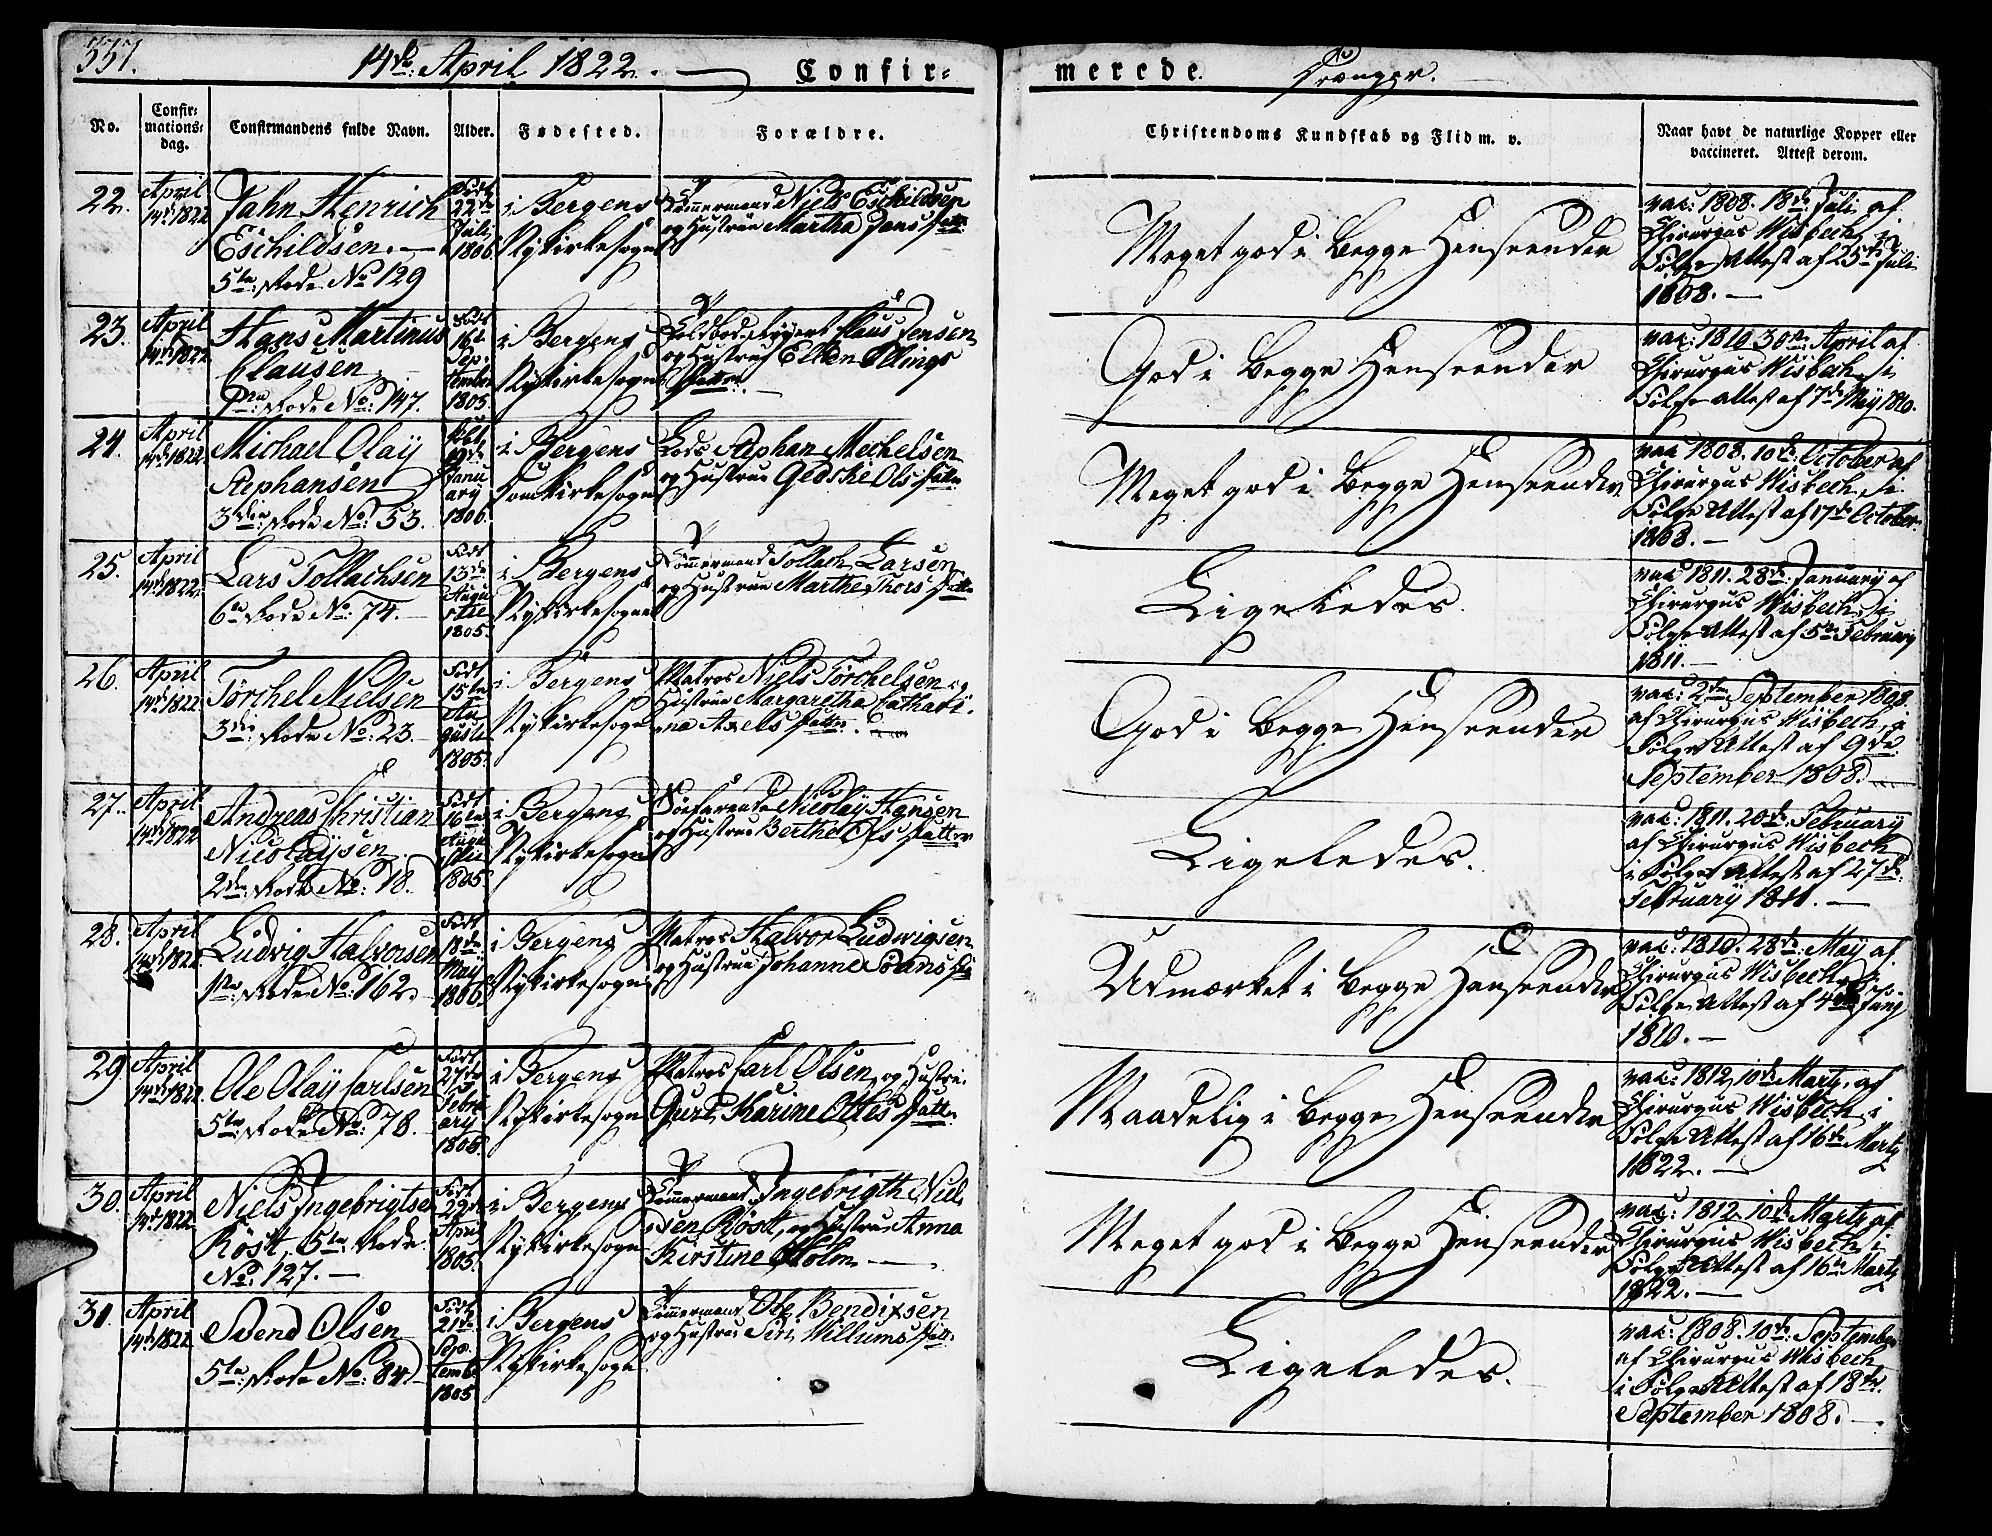 337.
14de April 1822.
Confir=
merede.
Drenger.
No.
Confir=
mations=
dag.
Confirmandens fulde Navn.
Alder.
Fødested.
Forældre.
Christendoms Kundskab og Flid m. v.
Naar havt de naturlige Kopper eller
vaccineret. Attest derom.
22.
April
14de 1822
Jahn Henrich
Eschildsen.
5te Rode No 129
Født
22de
Juli
1806.
i Bergens
Nykirkesogn
Tømmermand Niels Eschildsen
og Hustrue Martha Jans Datter
Meget god i begge Henseender
vac: 1808. 18de Juli af
Chirurgus Wisbech, i
Følge Attest af 25de Juli
1808.
23.
April
14de 1822
Hans Martinus
Clausen
1ste Rode No: 147.
Født
16de
Sep-
tember
1805.
i Bergens
Nykirkesogn
Claus Jensen
og Hustrue Ellen Ellings
Datter.
God i begge Henseender
vac: 1810 30te April af
Chirurgus Wisbech, i
Følge Attest af 7de May 1810.
24.
April
14de 1822
Michael Olay
Stephansen
3die Rode No: 53.
Født
19de
Janu
ary
1806.
i Bergens
Domkirkesogn
Lods Stephan Mechelsen
og Hustrue Gedske Ols Datter
Meget god i begge Henseender
vac 1808. 10de October af
Chirurgus Wisbech, i
Følge Attest af 17de October
1808.
25.
April
14de 1822
Lars Tollachsen
6te Rode No: 74.
Født
13de
Augu
sti
1805.
i Bergens
Nykirkesogn
Tømmermand Tollach Larsen
og Hustrue Marthe Thors Datter
Ligeledes.
vac 1811. 28de January af
Chirurgus Wisbech, i
Følge Attest af 5te February
1811.
26.
April
14de 1822
Törchel Nielsen
3die Rode No: 23.
Født
15de
Au
gusti
1805.
i Bergens
Nykirkesogn
Matros Niels Törchelsen og
Hustrue Margaretha Cathari-
na Axels Datter.
God i begge Henseender
vac: 2den September 1808.
af Chirurgus Wisbech, i
Følge Attest af 9de
September 1808.
27.
April
14de 1822
Andreas Christian
Nicolaysen
2den Rode No: 18.
Født
16de
Augu
sti
1805.
i Bergens
Nykirkesogn
Søefarende Nicolay Hansen
og Hustrue Berthe Ols Datter
Ligeledes.
vac: 1811. 20de February
af Chirurgus Wisbech
i Følge Attest af 27de
February 1811.
28.
April
14de 1822
Ludvig Halvorsen
1ste Rode No: 162.
Født
18de
May
1806.
i Bergens
Nykirkesogn
Matros Halvor Ludwigsen
og Hustrue Johanne
Udmærket i begge Henseender
vac: 1810. 28de May af
Chirurgus Wisbech, i
Følge Attest af 4de Juny
1810.
29.
April
14de 1822
Ole Olay Carlsen
5te Rode No: 78.
Født
27de
Febru
ary
1805.
i Bergens
Nykirkesogn
Matros Carl Olsen, og Hustrue
Gurt Karine Ottes Datter
Maadelig i begge Henseender
vac: 1812, 10de Marty, af
Chirurgus Wisbech i
Følge Attest af 16de Marty
1822.
30.
April
14de 1822
Niels Ingebrigtsen
Röst, 5te Rode
No: 127.
Født
29de
April
1805.
i Bergens
Nykirkesogn
Tømmermand Ingebrigth Niel
sen Röst, og Hustrue Anna
Kirstine Holm
Meget god i begge Henseender
vac: 1812, 10de Marty af
Chirurgus Wisbech i
Følge Attest af 16de Marty
1822.
31.
April
14de 1822
Svend Olsen
5te Rode No: 84.
Født
21de
Sep-
temb:
1805
i Bergens
Nykirkesogn
Tømmermand Ole Bendixsen
og Hustrue Siri Willums Datter
Ligeledes.
vac: 1808. 10de September
af Chirurgus Wisbech,
i Følge Attest af 18de
September 1808.